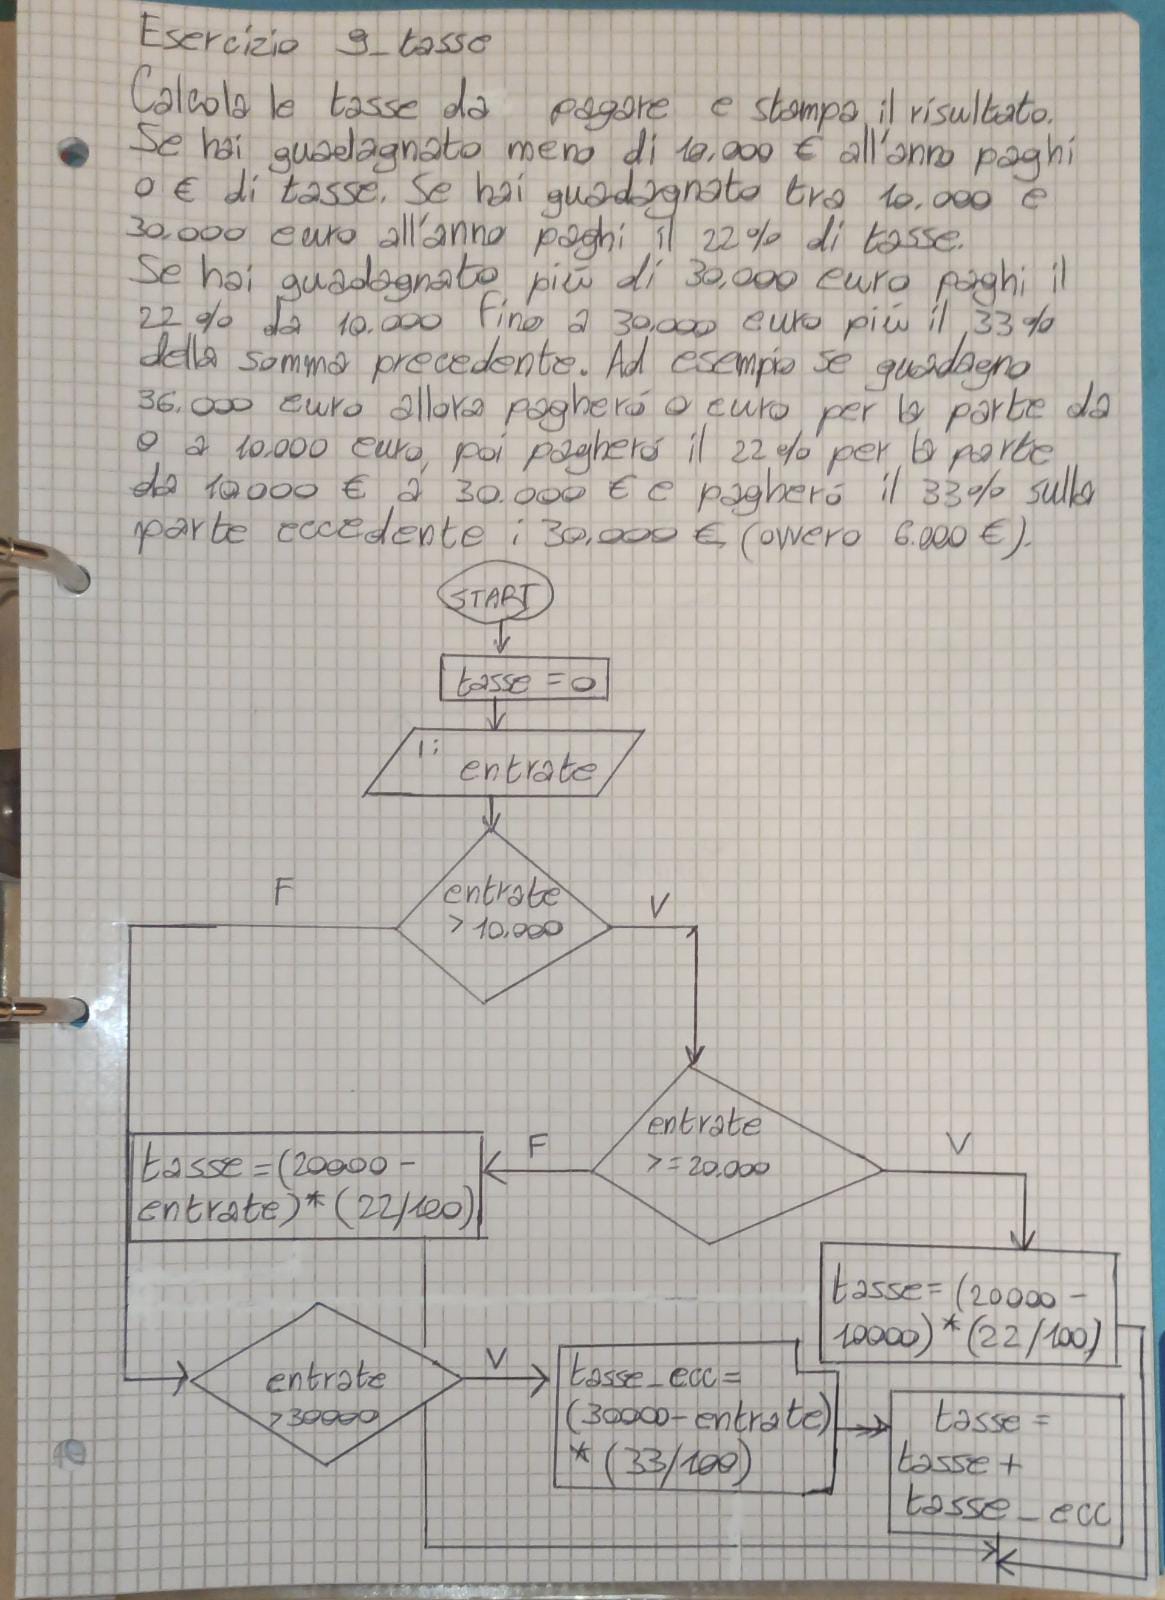 Esercizio 9_tasse
Calcola le tasse da pagare e stampa il risultato.
Se hai guadagnato meno di 10.000 € all'anno paghi
0 € di tasse. Se hai guadagnato tra 10.000 e
30.000 euro all'anno paghi il 22% di tasse.
Se hai guadagnato più di 30.000 euro paghi il
22% da 10.000 fino a 30.000 euro più il 33%
della somma precedente. Ad esempio se guadagno
36.000 euro allora pagheró 0 euro per la parte da
0 a 10.000 euro, poi pagheró il 22% per la parte
da 10000 € a 30.000 € e pagheró il 33% sulla
parte eccedente i 30.000 € (ovvero 6.000 €).
START
tasse = 0
I: entrate
entrate
> 10.000
F
V
entrate
>= 20.000
F
V
tasse = (20000 -
entrate) * (22/100)
tasse = (20000 -
10000) * (22/100)
entrate
>30000
V
tasse_ecc =
(30000 - entrate)
* (33/100)
tasse =
tasse +
tasse_ecc